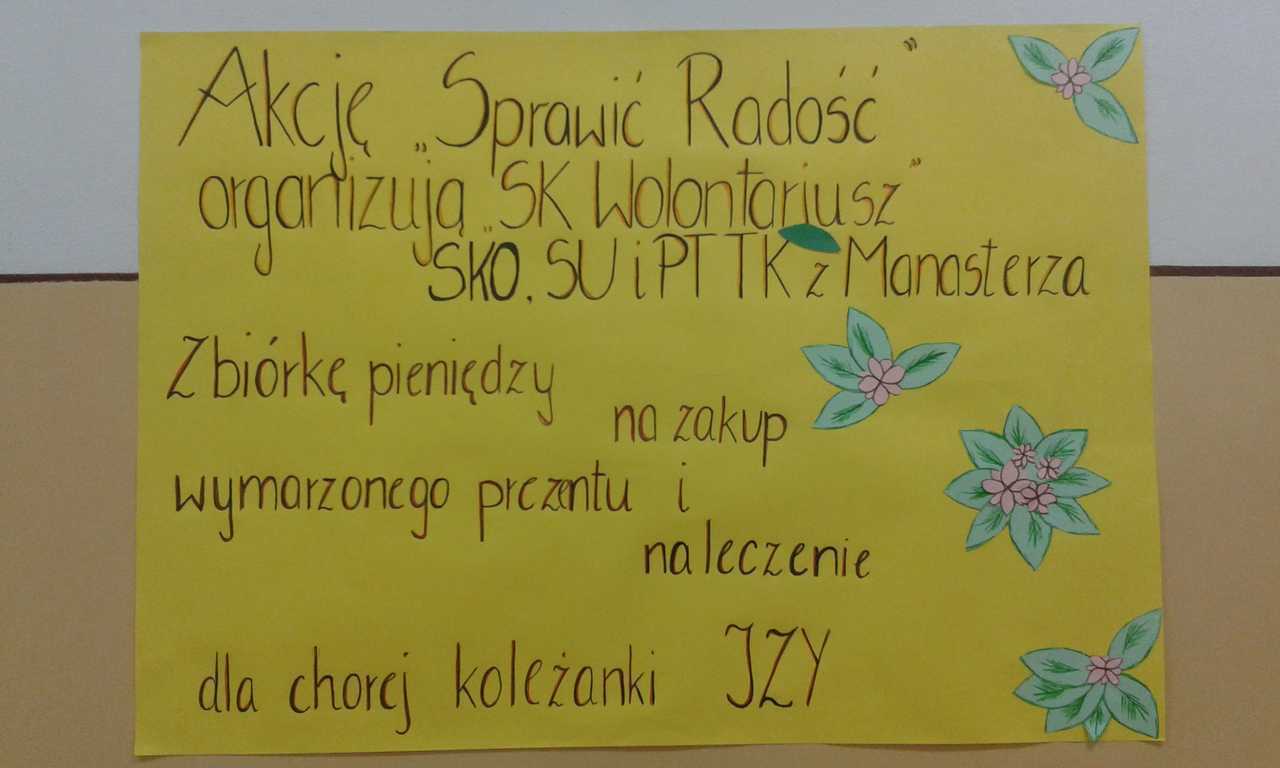 Akcję „Sprawić Radość”
organizują „SK Wolontariusz”
SKO, SU i PTTK z Manasterza
Zbiórkę pieniędzy
na zakup
wymarzonego prezentu i
na leczenie
dla chorej koleżanki IZY